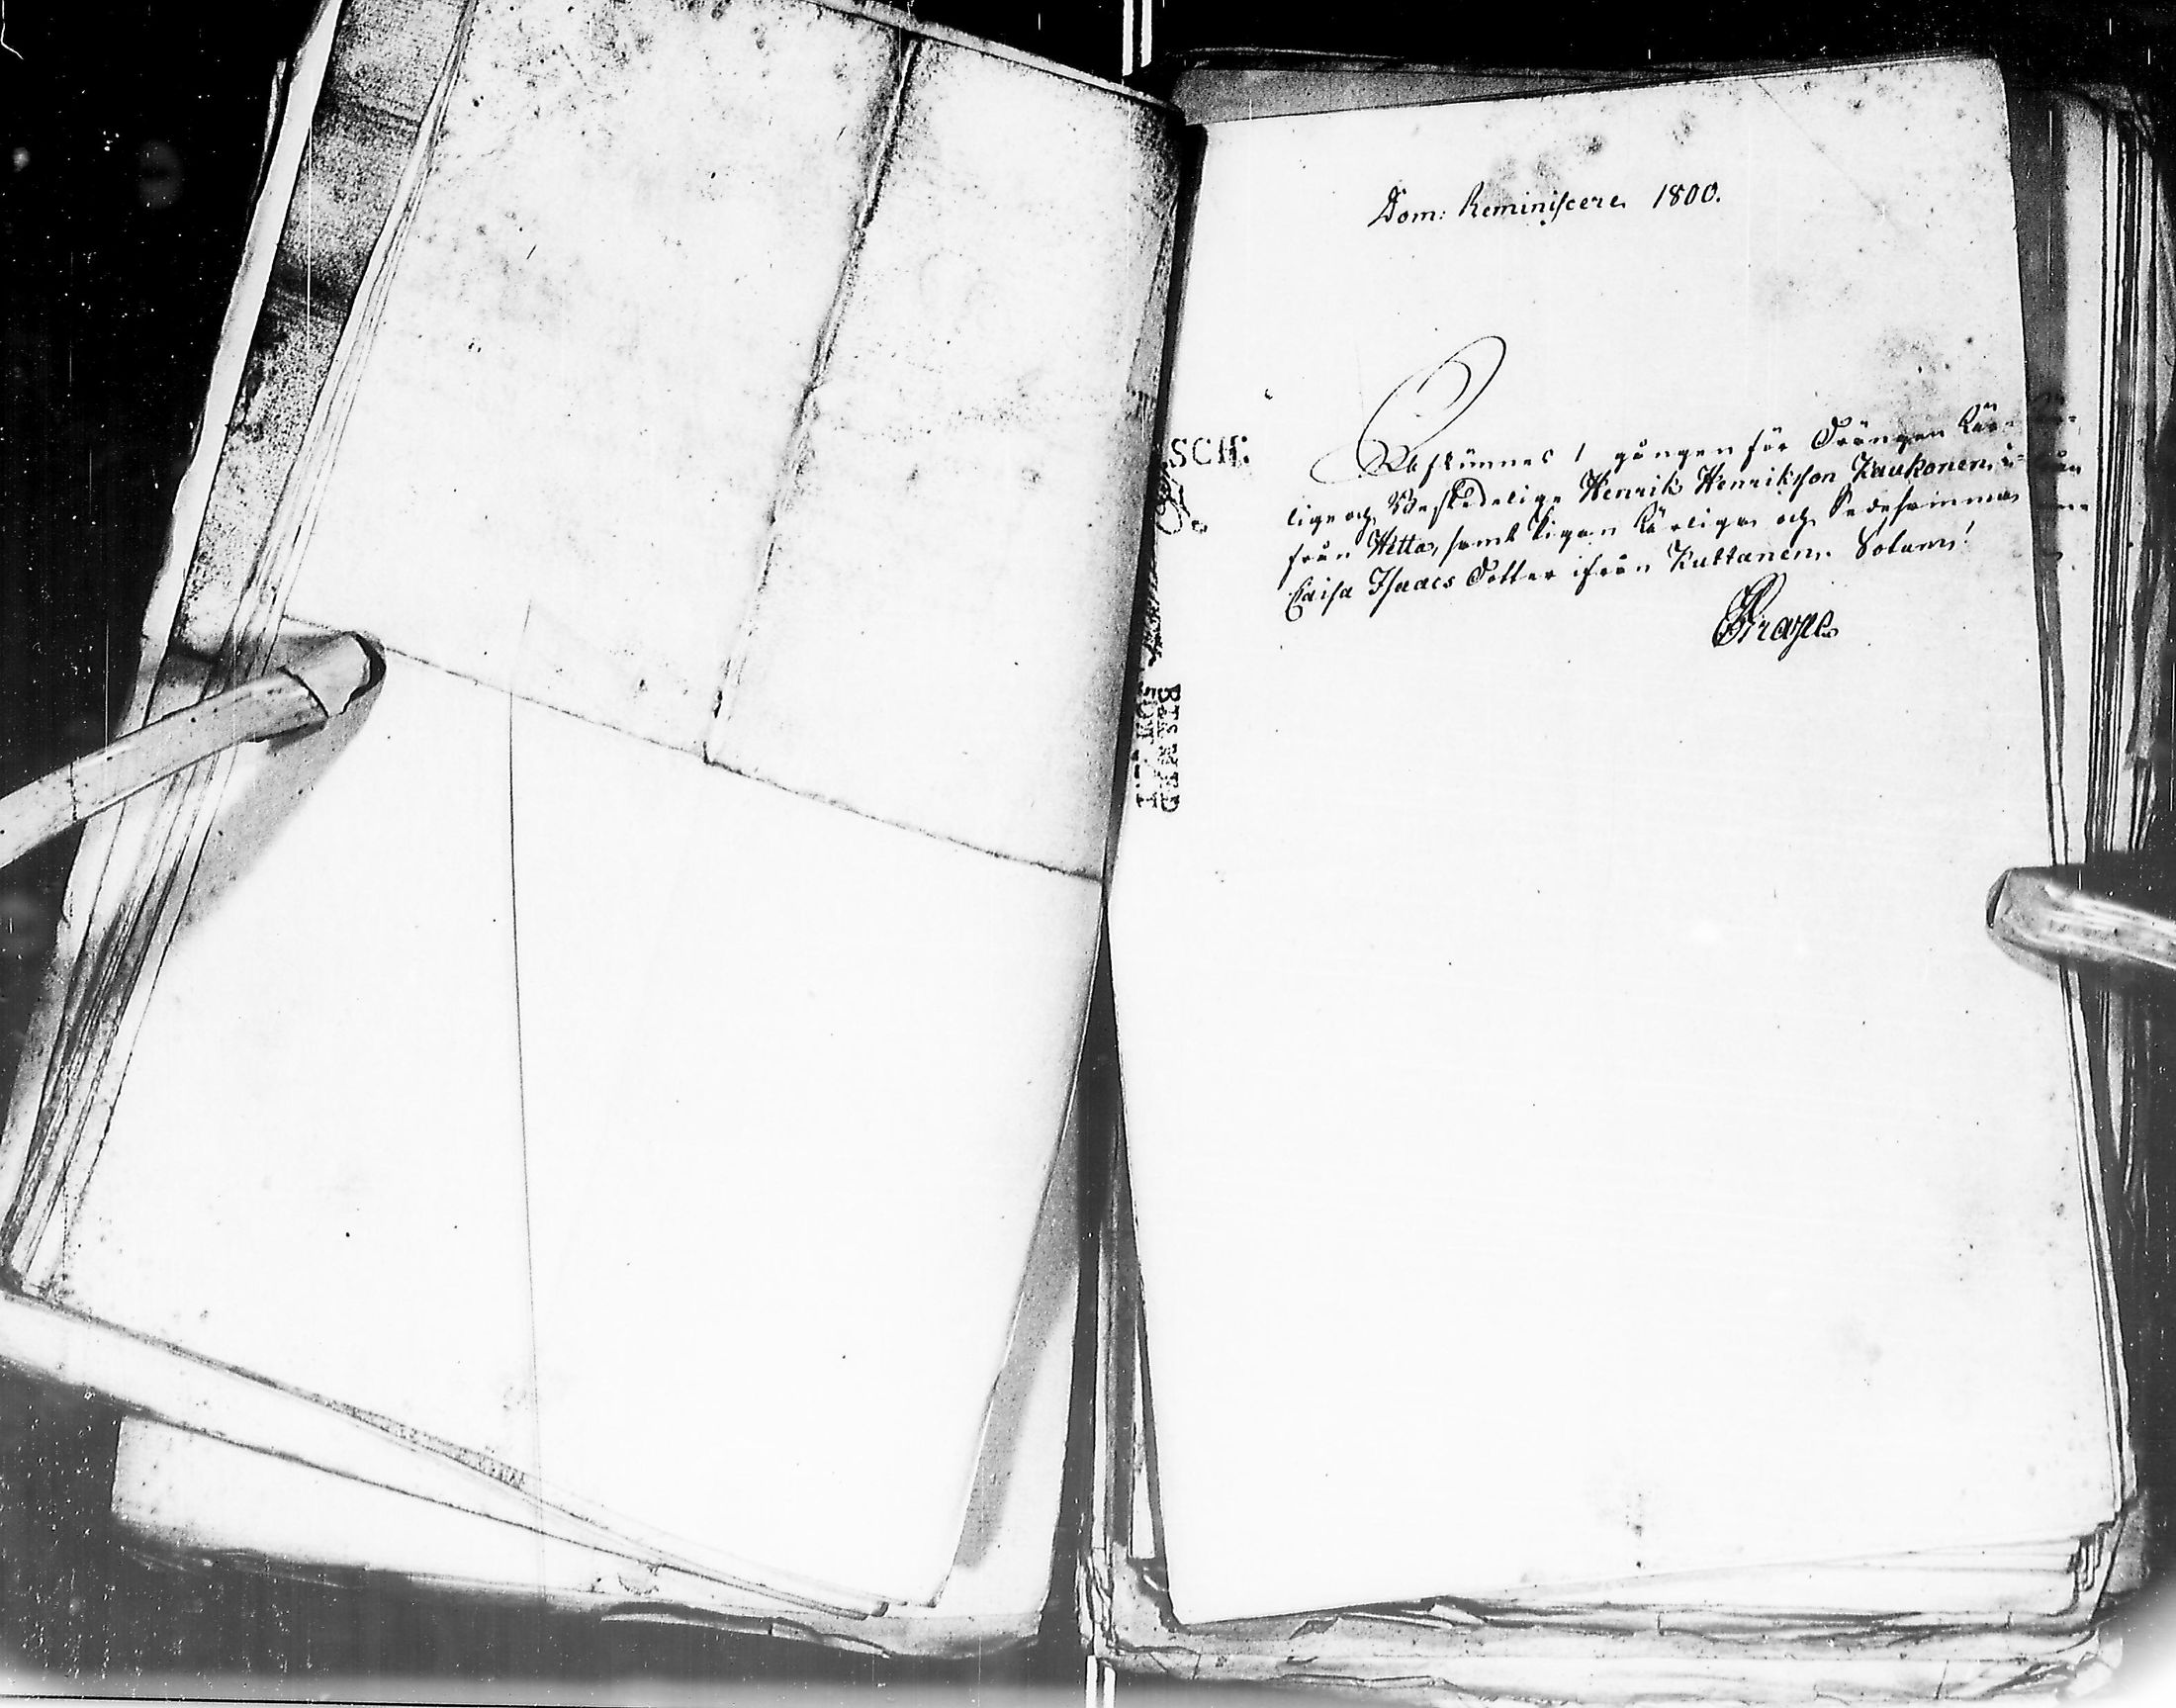 Dom: Reminiscere 1800.
Afkunnes 1 gången för Drängen Är-
lige och Beskedelige Henrik Henrikson Kaukonen i-
från Hetta, samt Pigan Ärliga och Sedesamma
Caisa Isaacs Dotter ifrån Kuttanen. Solum!
SCH: